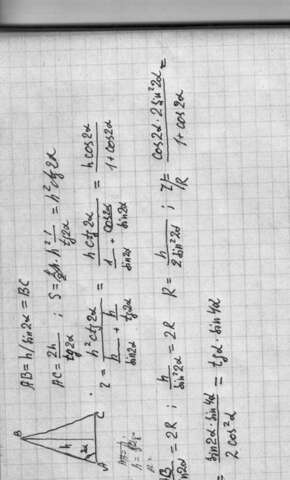 B
h
2α
A
C
AB = h/sin2α = BC
AC = 2h/tg2α ; S = h · h · 1/tg2α = h² ctg 2α
r = h² ctg 2α / (h/sin2α + h/tg2α) = h ctg 2α / (1/sin2α + cos2α/sin2α) = h cos2α / (1 + cos2α)
= 2R ; h/sin²2α = 2R ; R = h/(2 sin²2α) ; r/R = cos2α · 2 sin²2α / (1 + cos2α) =
= sin2α · sin4α / (2 cos²α) = tgα · sin4α